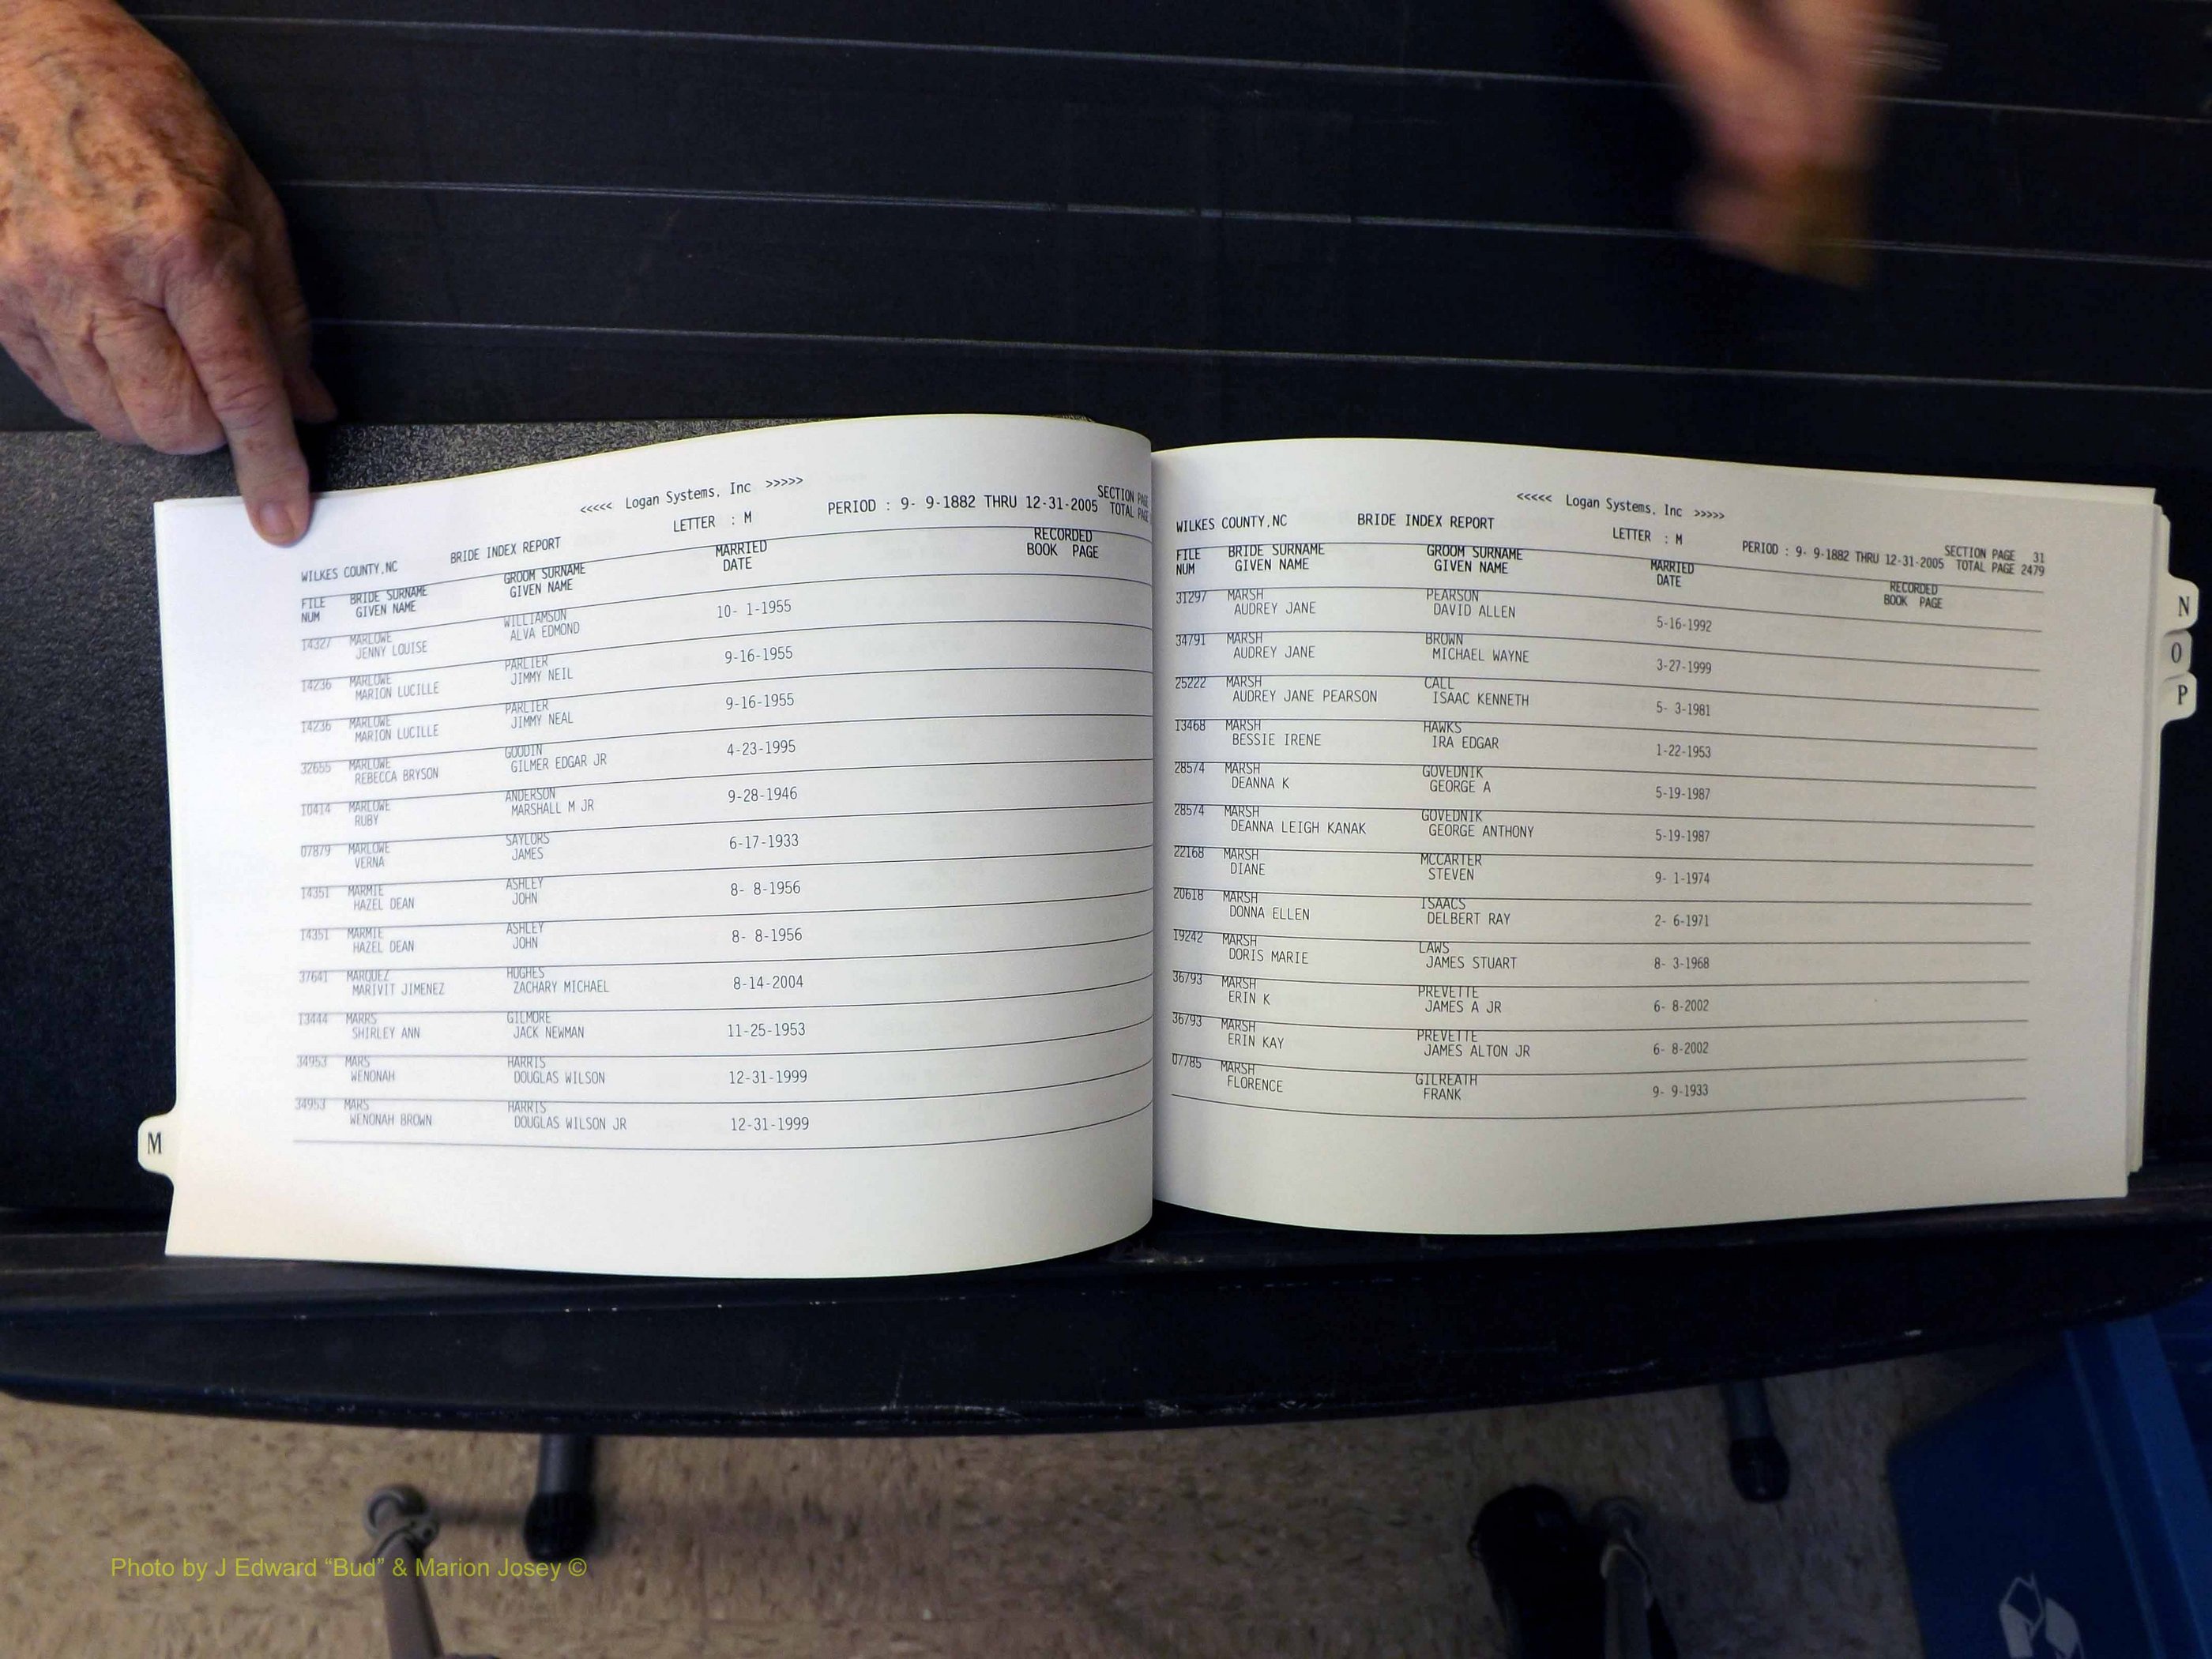 <<<<< Logan Systems, Inc >>>>>
WILKES COUNTY,NC BRIDE INDEX REPORT LETTER : M PERIOD : 9- 9-1882 THRU 12-31-2005 SECTION
TOTAL
FILE BRIDE SURNAME GROOM SURNAME MARRIED RECORDED
NUM GIVEN NAME GIVEN NAME DATE BOOK PAGE
14327 MARLOWE WILLIAMSON
JENNY LOUISE ALVA EDMOND 10- 1-1955
14236 MARLOWE PARLIER
MARION LUCILLE JIMMY NEIL 9-16-1955
14236 MARLOWE PARLIER
MARION LUCILLE JIMMY NEAL 9-16-1955
32655 MARLOWE GOODIN
REBECCA BRYSON GILMER EDGAR JR 4-23-1995
10414 MARLOWE ANDERSON
RUBY MARSHALL M JR 9-28-1946
07879 MARLOWE SAYLORS
VERNA JAMES 6-17-1933
14351 MARMIE ASHLEY
HAZEL DEAN JOHN 8- 8-1956
14351 MARMIE ASHLEY
HAZEL DEAN JOHN 8- 8-1956
37641 MARQUEZ HUGHES
MARIVIT JIMENEZ ZACHARY MICHAEL 8-14-2004
13444 MARRS GILMORE
SHIRLEY ANN JACK NEWMAN 11-25-1953
34953 MARS HARRIS
WENONAH DOUGLAS WILSON 12-31-1999
34953 MARS HARRIS
WENONAH BROWN DOUGLAS WILSON JR 12-31-1999
M
<<<<< Logan Systems, Inc >>>>>
WILKES COUNTY,NC BRIDE INDEX REPORT LETTER : M PERIOD : 9- 9-1882 THRU 12-31-2005 SECTION PAGE 31
TOTAL PAGE 2479
FILE BRIDE SURNAME GROOM SURNAME MARRIED RECORDED
NUM GIVEN NAME GIVEN NAME DATE BOOK PAGE
31297 MARSH PEARSON
AUDREY JANE DAVID ALLEN 5-16-1992
34791 MARSH BROWN
AUDREY JANE MICHAEL WAYNE 3-27-1999
25222 MARSH CALL
AUDREY JANE PEARSON ISAAC KENNETH 5- 3-1981
13468 MARSH HAWKS
BESSIE IRENE IRA EDGAR 1-22-1953
28574 MARSH GOVEDNIK
DEANNA K GEORGE A 5-19-1987
28574 MARSH GOVEDNIK
DEANNA LEIGH KANAK GEORGE ANTHONY 5-19-1987
22168 MARSH MCCARTER
DIANE STEVEN 9- 1-1974
20618 MARSH ISAACS
DONNA ELLEN DELBERT RAY 2- 6-1971
19242 MARSH LAWS
DORIS MARIE JAMES STUART 8- 3-1968
36793 MARSH PREVETTE
ERIN K JAMES A JR 6- 8-2002
36793 MARSH PREVETTE
ERIN KAY JAMES ALTON JR 6- 8-2002
07785 MARSH GILREATH
FLORENCE FRANK 9- 9-1933
N
O
P
Photo by J Edward “Bud” & Marion Josey ©